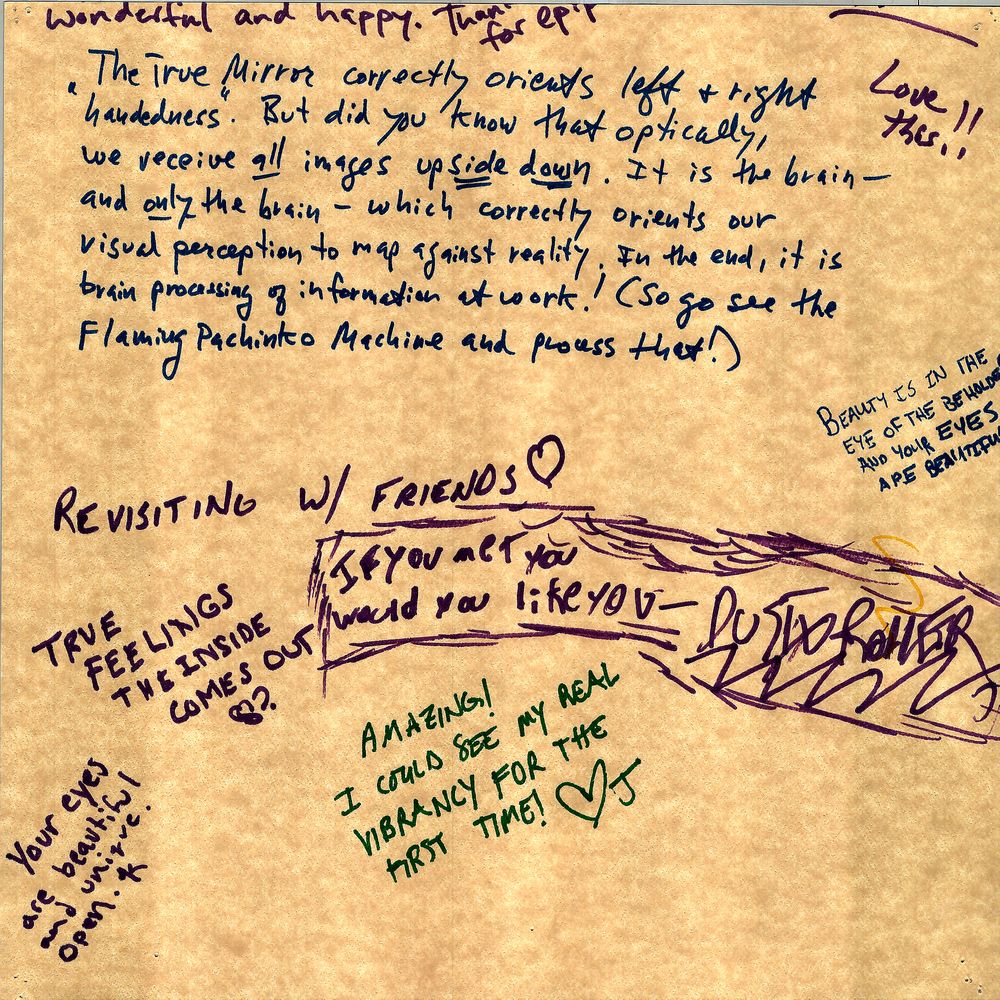 wonderful and happy. Than
for
Love
this!!
"The True Mirror correctly orients left + right
handedness". But did you know that optically,
we receive all images upside down. It is the brain—
and only the brain – which correctly orients our
visual perception to map against reality. In the end, it is
brain processing of information at work! (So go see the
Flaming Pachinko Machine and process that!)
BEAUTY IS IN THE
EYE OF THE BEHOLDE
AND YOUR EYES
ARE BEAUTIFU
REVISITING W/ FRIENDS ♡
If you met you
would you like YOU—
TRUE
FEELINGS
THE INSIDE
COMES OUT
AMAZING!
I COULD SEE MY REAL
VIBRANCY FOR THE
FIRST TIME! ♡ J
Your eyes
are beautiful
and unique.
Open.